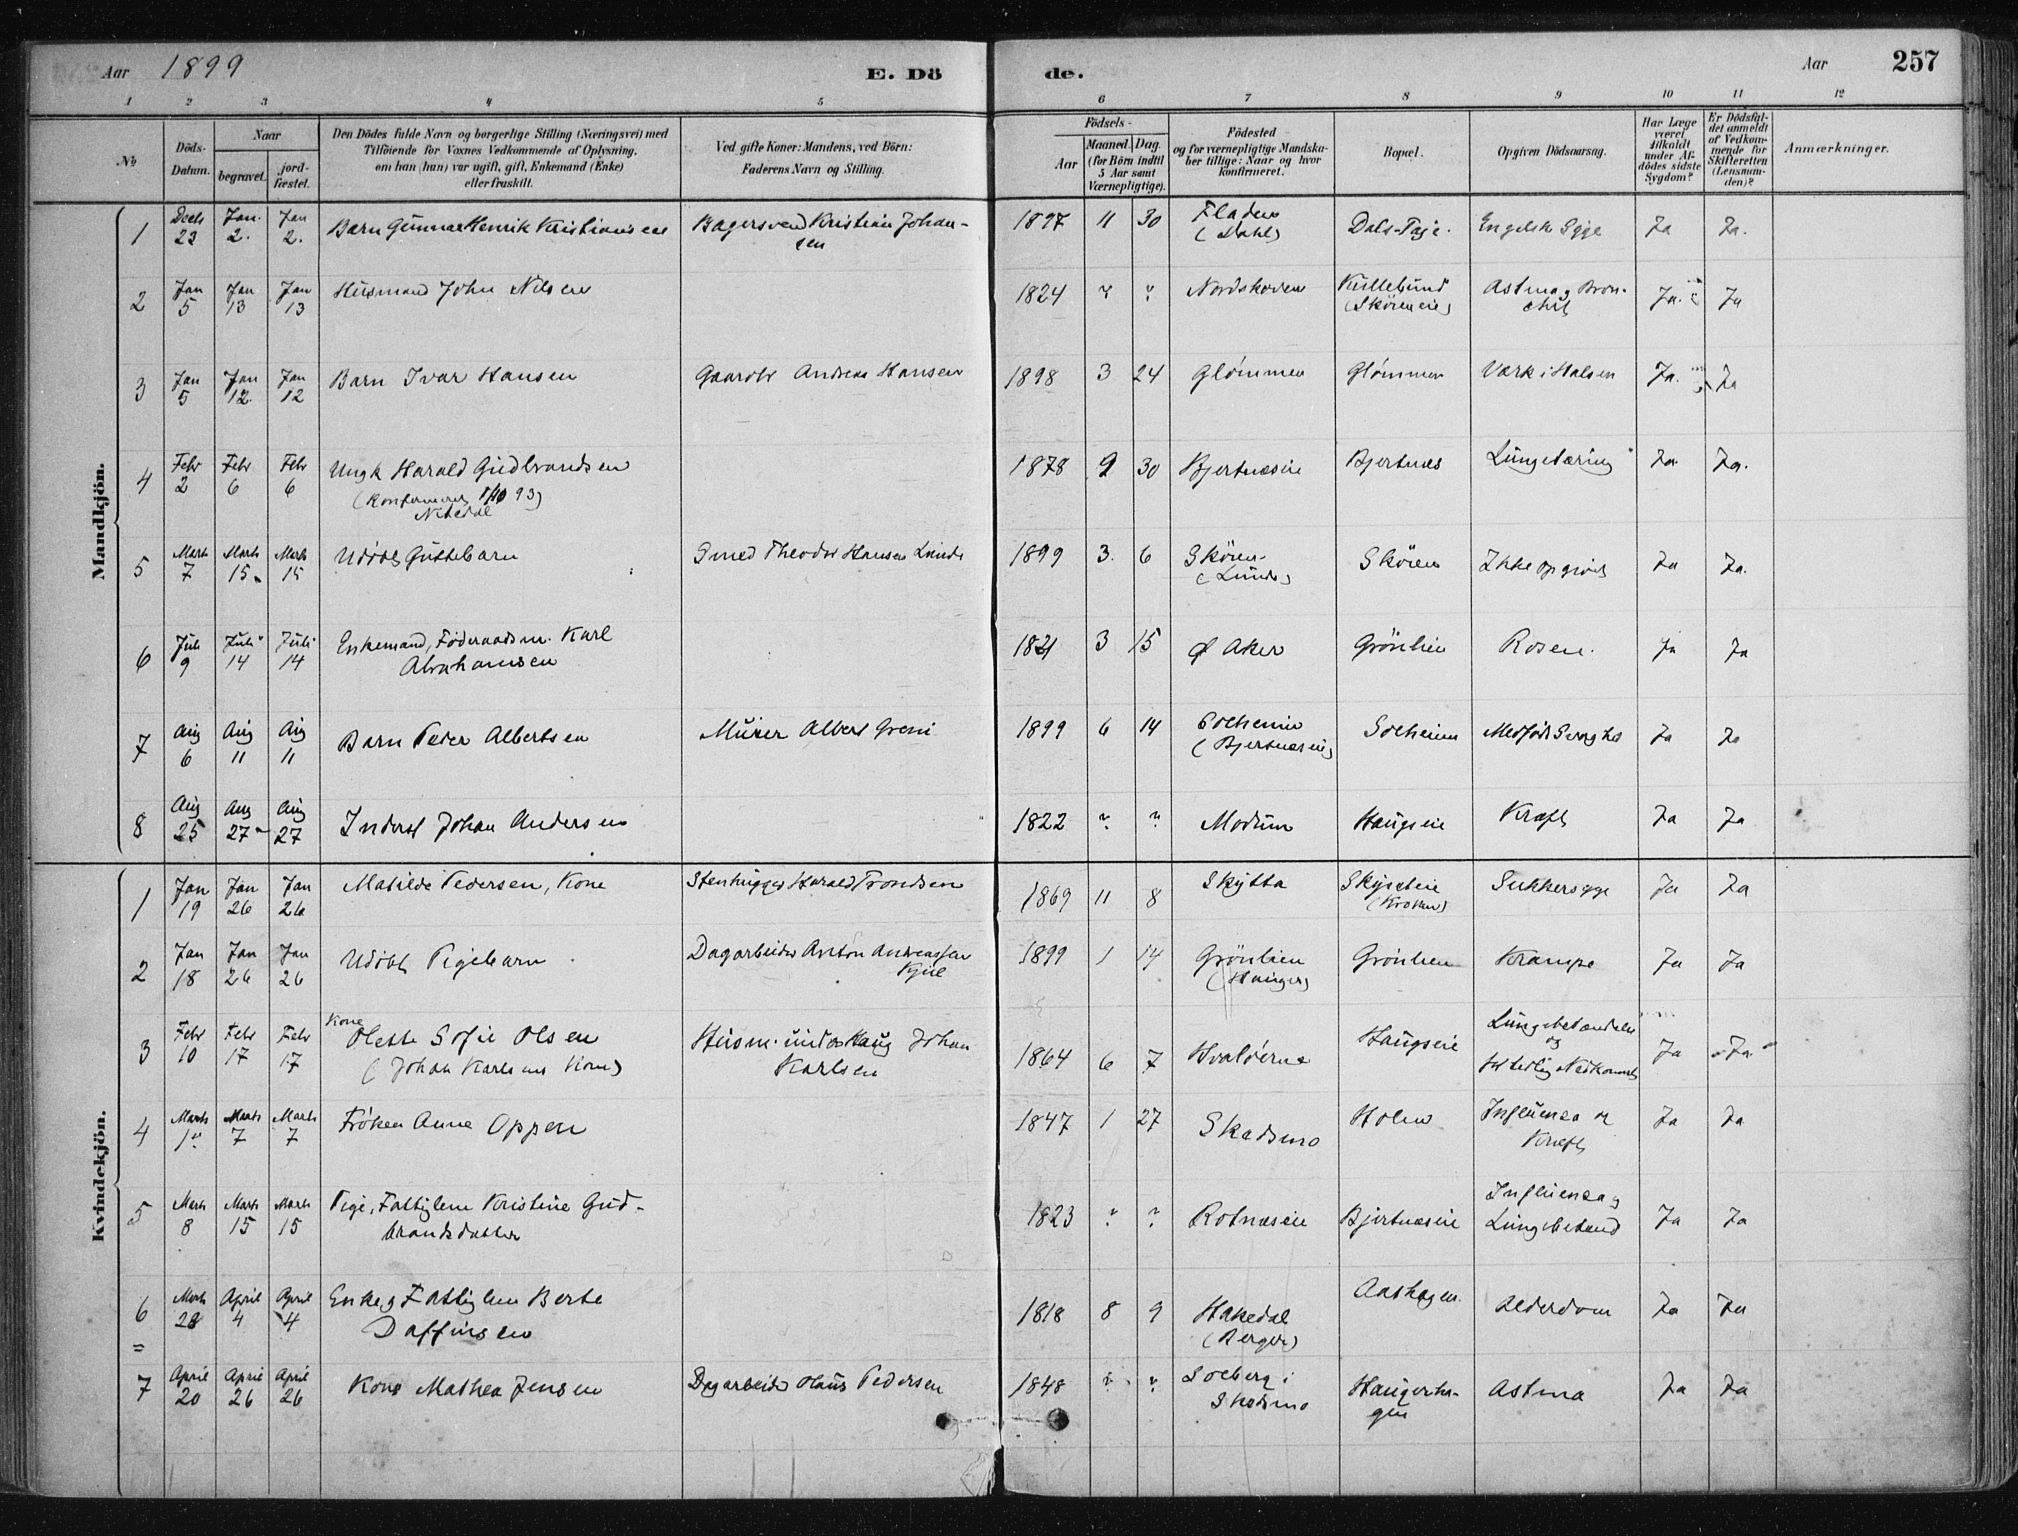 Aar 1899 E. Dö de. Aar 257
1 2 3 4 5 6 7 8 9 10 11 12
No
Döds-Datum.
Naar
begravet.
jord-fæstet.
Den Dödes fulde Navn og borgerlige Stilling (Næringsvei) med
Tilföiende for Voxnes Vedkommende af Oplysning,
om han (hun) var ugift, gift, Enkemand (Enke)
eller fraskilt.
Ved gifte Koner: Mandens, ved Börn:
Faderens Navn og Stilling.
Födsels-
Aar
Maaned. Dag.
(for Börn indtil
5 Aar samt
Værnepligtige).
Födested
og for værnepligtige Mandska-
ber tillige: Naar og hvor
konfirmeret.
Bopæl.
Opgiven Dödsaarsag.
Har Læge
været
tilkaldt
under Af-
dödes sidste
Sygdom?
Er Dödsfal-
det anmeldt
af Vedkom-
mende for
Skifteretten
(Lensman-
den)?
Anmærkninger.
Mandkjön.
1 Decb 23 Jan. 2. Jan 2. Barn Gunnar Henrik Kristiansen Bagersvend Kristian Johan-
sen 1897 11 30 Fladen (Dahl) Dals-Pige. Engelsk Syge Ja Ja.
2 Jan 5 Jan 13 Jan 13 Husmand John Nilsen 1824 " " Nordskoven Kullebund (Skøreneie) Astma og Bron-
chit Ja. Ja
3 Jan 5 Jan 12. Jan 12 Barn Ivar Hansen Gaardbr Andreas Hansen 1898 3 24 Glømmen Glømmen Værk i Halsen Ja. Ja
4 Febr 2 Febr 6 Febr 6 Ungk Harald Gudbrandsen
(Konfirmeret 1/10 93)
Nitedal 1878 9 30 Bjertnæseie Bjertnæs Lungetæring Ja Ja.
5 Marts 7 Marts 15 Marts 15 Udøbt Guttebarn Smed Theodor Hansen Lunde 1899 3. 6 Skøien-
(Lunde) Skøien Ikke opgivet Ja Ja.
6 Juli 9 Juli 14 Juli 14 Enkemand, Føderaadsm. Karl
Abrahamsen 1821 3 15 Ø Aker Grönlien Rosen. Ja Ja
7 Aug 6 Aug 11 Aug 11 Barn Peder Albertsen Murer Albert Greni 1899 6 14 Solheim
(Bjertnæseie) Solheim Medfødt Svaghed Ja Ja
8 Aug 25 Aug 27 Aug 27 Inderst Johan Andersen 1822 " " Modum Haugseie Kræft Ja Ja
Kvindekjön.
1 Jan 19 Jan 26 Jan 26 Matilde Pedersen, Kone Stenhugger Harald Trondsen 1869 11 8 Skytta Skytteie
(Kroken) Sukkersyge Ja Ja
2 Jan 18 Jan 26 Jan 26 Udøbt Pigebarn Dagarbeider Anton Andreassen
Kjul 1899 1 14 Grönlien
(Hauger) Grönlien Krampe Ja Ja
3 Febr 10 Febr 17 Febr 17 Kone
Olette Sofie Olsen
(Johan Karlsens Kone) Husm. under Haug Johan
Karlsen 1864 6 7 Hvaløerne Haugseie Lungebetændelse
og
for tidlig Nedkomst Ja Ja
4 Marts 1 Marts 7 Marts 7 Frøken Anne Oppen 1847 1 27 Skedsmo Holm Influensa og
Kræft Ja Ja
5 Marts 8 Marts 15 Marts 15 Pige, Fattiglem Kristine Gud-
brandsdatter 1823 " " Rotnæseie Bjertnæseie Influensa og
Lungebetænd Ja Ja
6 Marts 28 April 4 April 4 Enke og Fattiglem Berte
Daffinsen 1818 8 9 Hakedal
(Berger) Aashagen. Alderdom Ja Ja
7 April 20 April 26 April 26 Kone Mathea Jensen Dagarbeider Olaus Pedersen 1848 " " Solberg i
Skedsmo Haugerha-
gen Astma Ja Ja